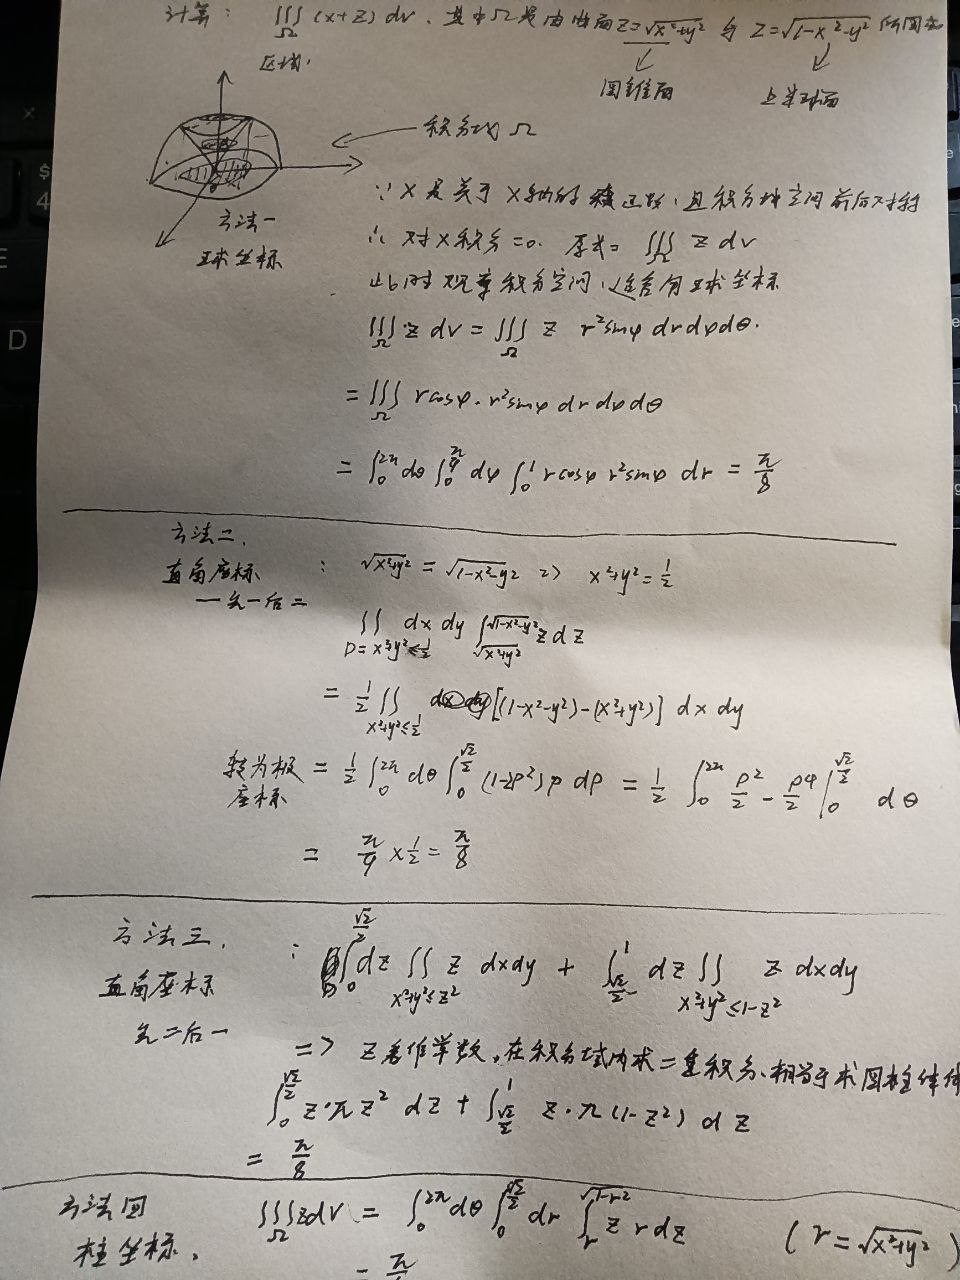 计算: ∭_Ω (x+z) dv. 其中Ω是由曲面z=√(x²+y²) 与 z=√(1-x²-y²) 所围成
区域.
圆锥面
上半球面
积分域 Ω
方法一
球坐标
∵ x 是关于 x轴的 函数, 且积分域空间前后对称
∴ 对x积分=0. 原式= ∭_Ω z dv
此时观察积分空间, 适合用球坐标
∭_Ω z dv = ∭_Ω z r²sinφ drdφdθ.
= ∭_Ω rcosφ · r²sinφ dr dφ dθ
= ∫_0^{2π} dθ ∫_0^{π/4} dφ ∫_0^1 rcosφ r²sinφ dr = π/8
方法二.
直角座标
一先一后二
: √(x²+y²) = √(1-x²-y²) => x²+y² = 1/2
∬_{D=x²+y²≤1/2} dx dy ∫_{√(x²+y²)}^{√(1-x²-y²)} z dz
= 1/2 ∬_{x²+y²≤1/2} [(1-x²-y²)-(x²+y²)] dx dy
转为极
座标
= 1/2 ∫_0^{2π} dθ ∫_0^{√2/2} (1-2ρ²)ρ dρ = 1/2 ∫_0^{2π} ρ²/2 - ρ⁴/2 |_0^{√2/2} dθ
= π/4 × 1/2 = π/8
方法三.
直角座标
先二后一
: ∫_0^{√2/2} dz ∬_{x²+y²≤z²} z dxdy + ∫_{√2/2}^1 dz ∬_{x²+y²≤1-z²} z dxdy
=> z看作常数, 在积分域内求二重积分. 相当于求圆柱体体
∫_0^{√2/2} z·πz² dz + ∫_{√2/2}^1 z·π(1-z²) dz
= π/8
方法四
柱坐标.
∭_Ω zdV = ∫_0^{2π} dθ ∫_0^{√2/2} dr ∫_r^{√(1-r²)} z r dz (r=√(x²+y²))